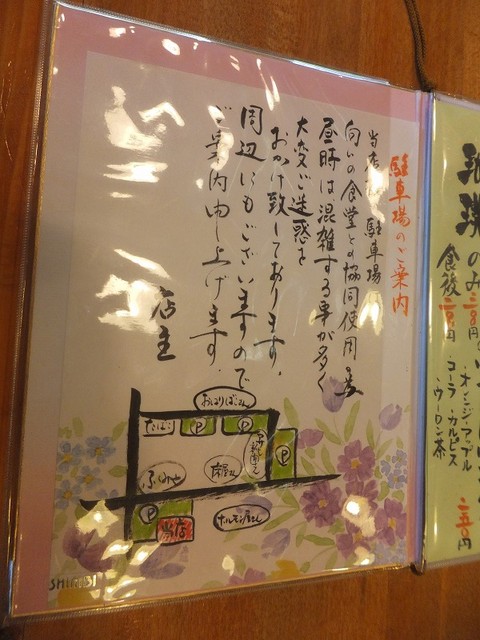 駐車場のご案内
当店 駐車場
向いの食堂との協同使用の為
昼時は、混雑する事が多く
大変ご迷惑を
おかけ致しております。
周辺にもございますので
ご案内申し上げます。
店主
おはりばさん
たばこ
P
P
P
ふみや
床屋さん
P
当店
ホルモン屋さん
SHIGEJI
珈琲のみ
食後
・オレンジ・アップル
・コーラ・カルピス
・ウーロン茶
円